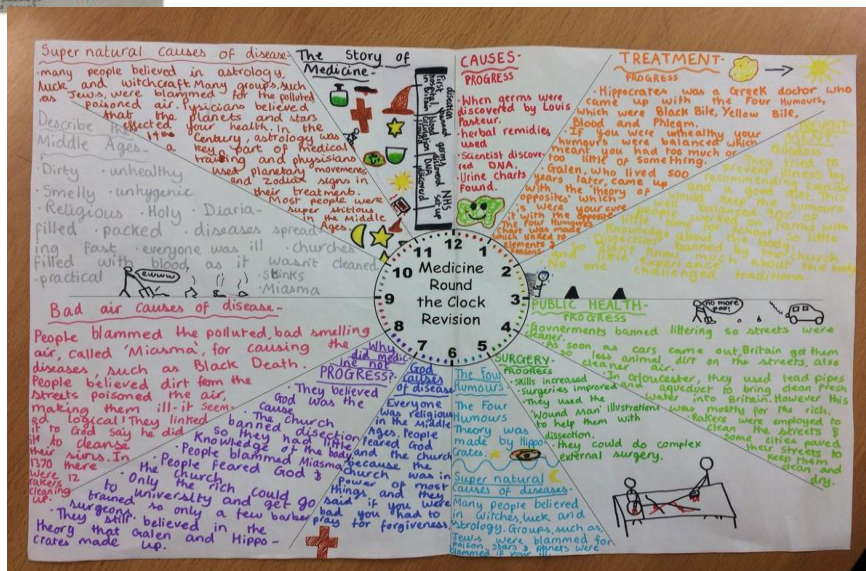 Super natural causes of disease-
·many people believed in astrology,
luck and witchcraft. Many groups, such
as Jews, were blammed for the polluted
poisoned air. Pysicians believed
that the planets and stars
effected your health. In the
Century, astrology was
a key part of medical
training and physicians
used planetary movements
and zodiac signs in
their treatment.
Most people were
super sticious
in the Middle
Ages.
The Story of
Medicine-
NHS
DNA
CAUSES-
PROGRESS
·When germs were
discovered by Louis
Pasteur.
·herbal remidies
used
·Scientist discov-
red DNA.
·Urine charts
found.
TREATMENT-
PROGRESS
·Hippocrates was a Greek doctor who
came up with the Four Humours,
which were Black Bile, Yellow Bile,
Blood and Phlegm.
·If you were unhealthy your
humours were balanced which
meant you had too much or
too little of something.
·Galen, who lived 500
years later, came up
with the 'Theory of
opposites' which
is were your cure
it with the opposite.
·The Four Humours
chart was made
which linked
elements &
seasons
PROGRESS
They tried to
prevent illness by
recommending exercise
and good diet. This
would keep the humours
well balanced. 90% of
people worked on farms with
no time for school so little
knowledge about the body.
Dissection banned by the church
so didn't know much about the body
and little experience.
·No one challenged traditions.
Describe the
Middle Ages-
·Dirty ·unhealthy
·Smelly ·unhygenic
·Religious ·Holy ·Diaria-
filled ·packed ·diseases spread-
ing fast ·everyone was ill ·churches
filled with blood, as it wasn't cleaned
·practical ·stinks
·Miasma
ewww
12
1
2
3
4
5
6
7
8
9
10
11
Medicine
Round
the Clock
Revision
PUBLIC HEALTH-
PROGRESS
no more
poo!
·Governments banned littering so streets were
cleaner.
·As soon as cars came out, Britain got them
so less animal dirt on the streets, also
cleaner air.
·In Gloucester, they used lead pipes
and aqueduct to bring clean fresh
water into Britain. However this
was mostly for the rich.
·Rakers were employed to
clean the streets &
some cities paved
their streets to
keep them
clean and
dry.
SURGERY-
PROGRESS
·Skills increased
·surgeries improved
·They used the
'Wound Man' illustrations
to help them with
dissection.
·they could do complex
external surgery.
The Four
Humours
The Four
Humours
Theory was
made by Hippo-
crates.
Super natural
causes of diseases-
Many people believed
in witches, luck and
astrology. Groups, such as
Jews were blammed for
poison, stars & planets were
blammed if your ill.
God
causes
of disease
Everyone
was religious
in the middle
Ages. People
feared God
and the church
because the
church was in
power of most
things and they
said if you were
bad you had to
pray for forgiveness.
Why
did medic-
ine not
PROGRESS?
·They believed
God was the
cause
·The Church
banned disection
so they had little
knowledge of the body
·People blammed Miasma
·People feared God &
the Church
·Only the rich could go
to university and get
trained so only a few barber
surgeons
·They still believed in the
theory that Galen and Hippo-
crates made up.
Bad air causes of disease-
People blammed the polluted, bad smelling
air, called 'Miasma', for causing the
diseases, such as Black Death.
People believed dirt from the
streets poisoned the air,
making them ill- it seem-
ed logical! They linked
it to God say he did
it to cleanse
their sins. In
1370 there
were 12
rakers
cleaning
up.